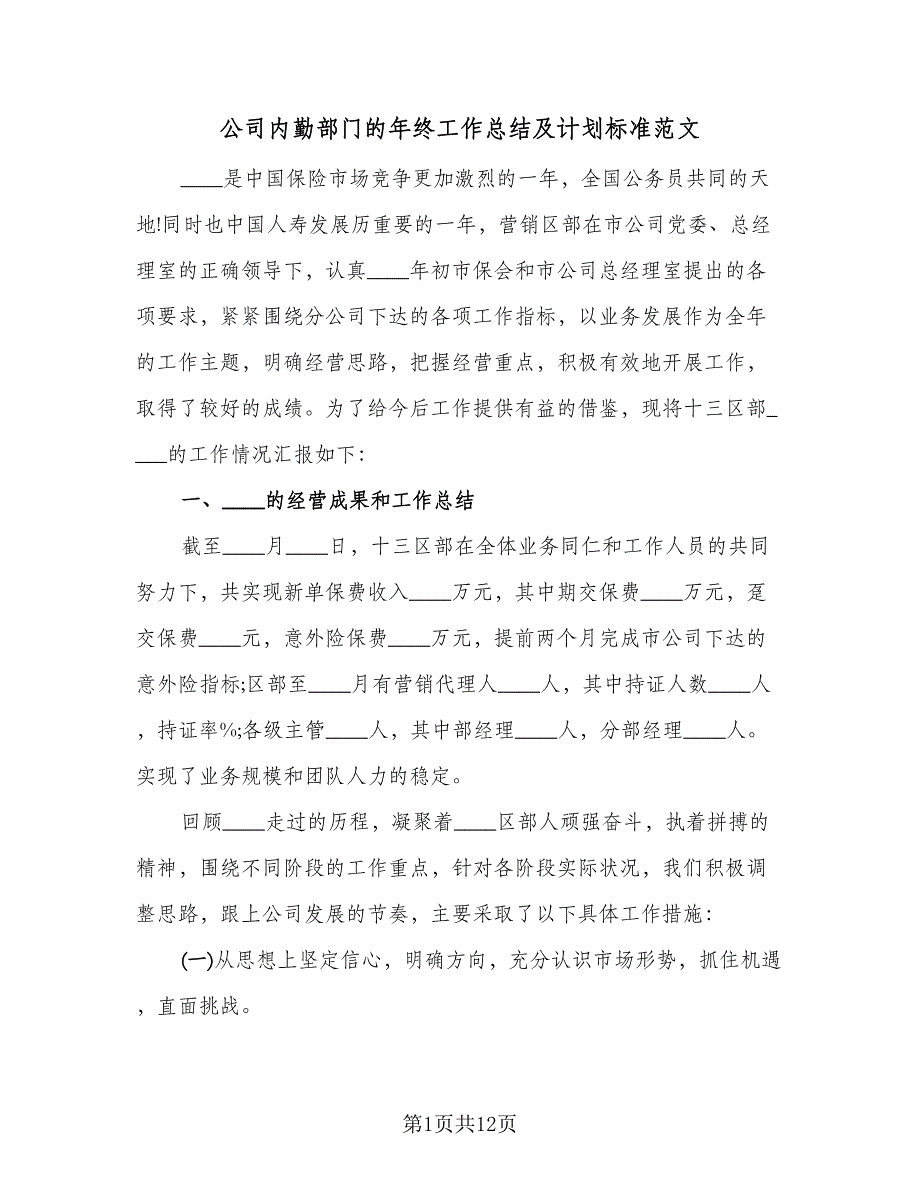 公司内勤部门的年终工作总结及计划标准范文
____是中国保险市场竞争更加激烈的一年，全国公务员共同的天
地!同时也中国人寿发展历重要的一年，营销区部在市公司党委、总经
理室的正确领导下，认真____年初市保会和市公司总经理室提出的各
项要求，紧紧围绕分公司下达的各项工作指标，以业务发展作为全年
的工作主题，明确经营思路，把握经营重点，积极有效地开展工作，
取得了较好的成绩。为了给今后工作提供有益的借鉴，现将十三区部_
___的工作情况汇报如下：
一、____的经营成果和工作总结
截至____月____日，十三区部在全体业务同仁和工作人员的共同
努力下，共实现新单保费收入____万元，其中期交保费____万元，趸
交保费____元，意外险保费____万元，提前两个月完成市公司下达的
意外险指标;区部至____月有营销代理人____人，其中持证人数____人
，持证率%;各级主管____人，其中部经理____人，分部经理____人。
实现了业务规模和团队人力的稳定。
回顾____走过的历程，凝聚着____区部人顽强奋斗，执着拼搏的
精神，围绕不同阶段的工作重点，针对各阶段实际状况，我们积极调
整思路，跟上公司发展的节奏，主要采取了以下具体工作措施：
(一)从思想上坚定信心，明确方向，充分认识市场形势，抓住机遇
，直面挑战。
第1页共12页